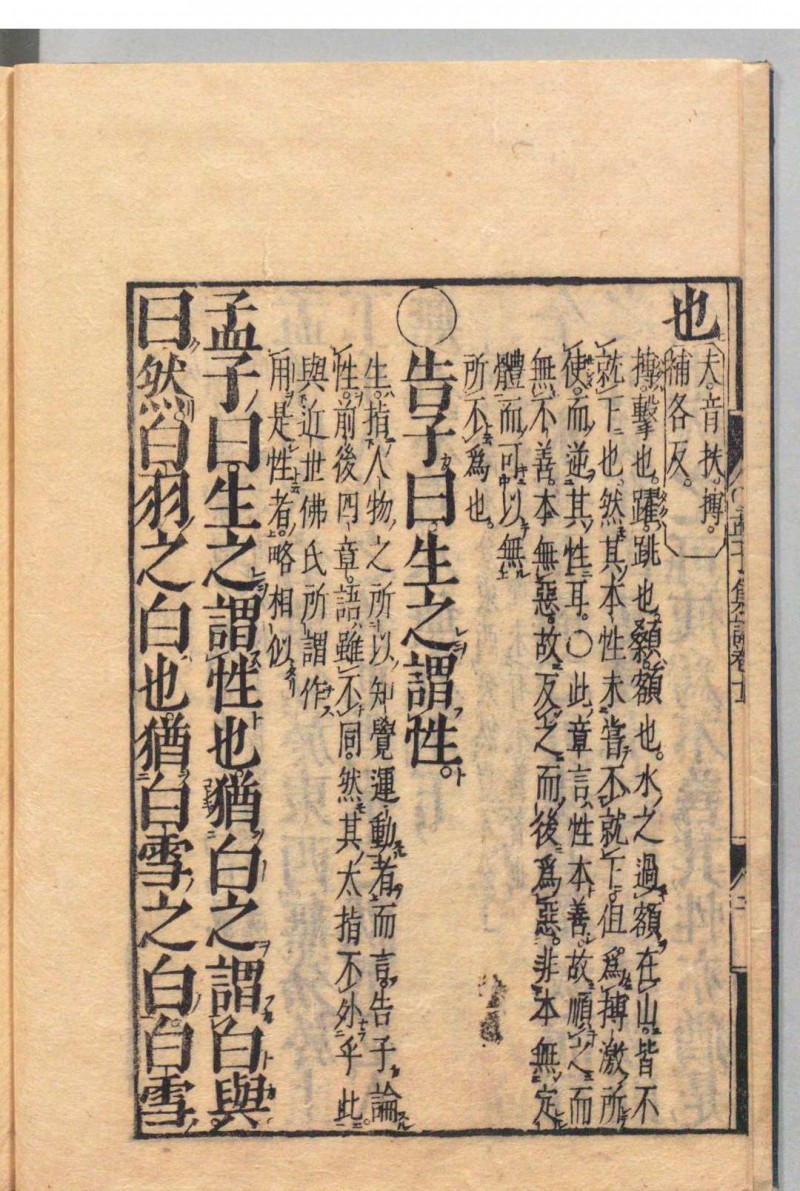 也
夫音扶搏
補各反
搏擊也躍跳也顙額也水之過額在山皆不
就下也然其本性未嘗不就下但為搏激所
使而逆其性耳○此章言性本善故順之而
無不善本無惡故反之而後為惡非本無定
體而可以無
所不為也
○告子曰生之謂性
生指人物之所以知覺運動者而言告子論
性前後四章語雖不同然其大指不外乎此
與近世佛氏所謂作
用是性者略相似
孟子曰生之謂性也猶白之謂白與
曰然白羽之白也猶白雪之白白雪